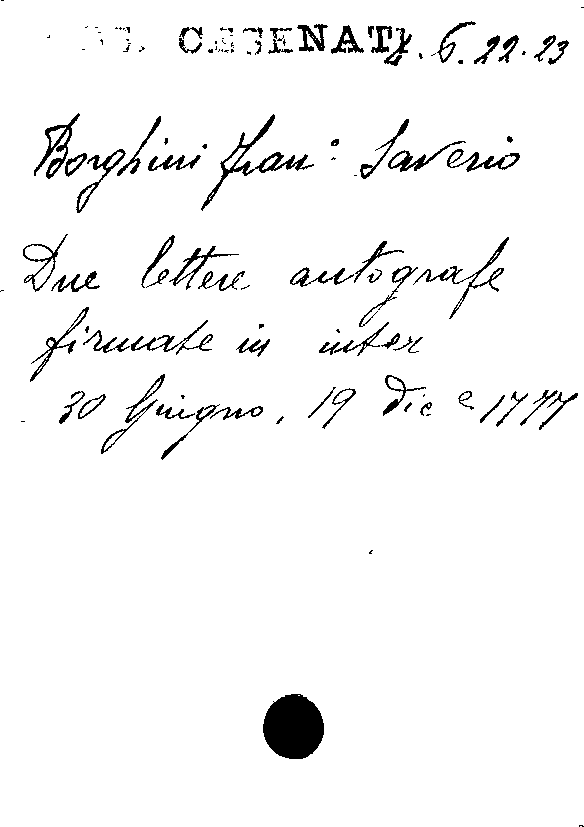 MSS. CESENATI 4.6.22.23
Borghini Fran.º Saverio
Due lettere autografe
firmate in inter
30 Giugno, 19 Dic e 1777